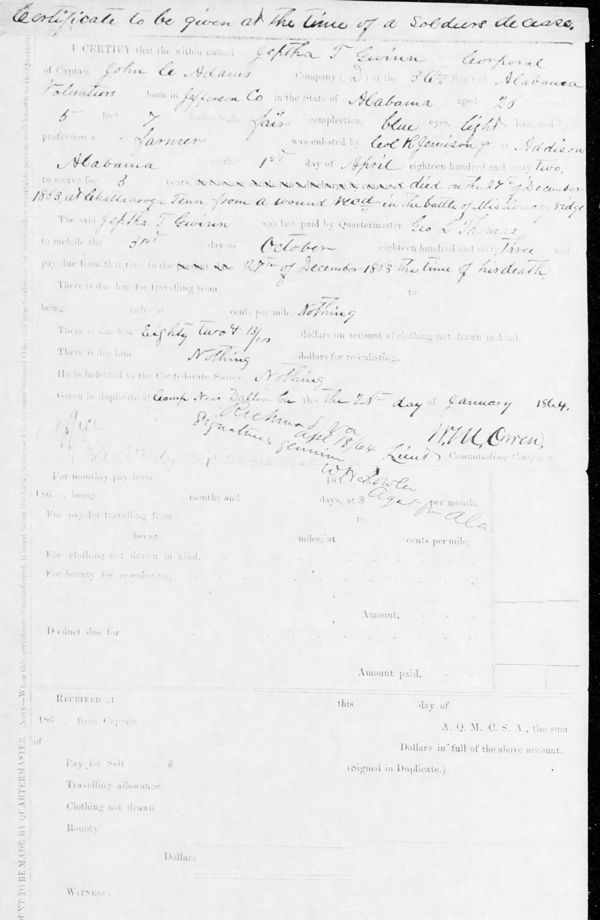 Certificate to be given at the time of a Soldiers decease.
I CERTIFY that the within named Jeptha T Gwinn Corporal
of Captain John C Adams Company (D) of the 36th Reg't of Alabama
Volunteers born in Jefferson Co in the State of Alabama aged 26
5 feet 7 inches high, fair complection, blue eyes, light hair, and by
profession a farmer was enlisted by at Addison
Alabama on the 1st day of April eighteen hundred and sixty two,
to serve for 3 years, died on the 27th of December
1863, at Chattanooga Tenn from a wound recd in the battle of Missionary ridge
The said Jeptha T Gwinn was last paid by Quartermaster Geo L Thomas
to include the 31st day of October eighteen hundred and sixty three and
pay due from that time to the 27th of December 1863 the time of his death,
There is due him for travelling from to
being miles at cents per mile, Nothing
There is due him Eighty two & 13/100 dollars on account of clothing not drawn in kind.
There is due him Nothing dollars for re-enlisting.
He is indebted to the Confederate States Nothing
Given in duplicate at Camp Near Dalton Ga this the 25th day of January 1864.
Richmond Va
Apl 18/64
Signatures genuine
W.M. Owen,
Lieut Commanding Company.
Agent for Ala
For monthly pay from 186
186 , being months and days, at $ per month,
For pay for travelling from to
being miles, at cents per mile,
For clothing not drawn in kind,
For bounty for re-enlisting,
Amount,
Deduct due for
Amount paid,
RECEIVED at this day of
186 , from Captain A. Q. M. C. S. A., the sum
of Dollars in full of the above account.
Pay for Self $ (Signed in Duplicate.)
Travelling allowance
Clothing not drawn
Bounty
Dollars
WITNESS: